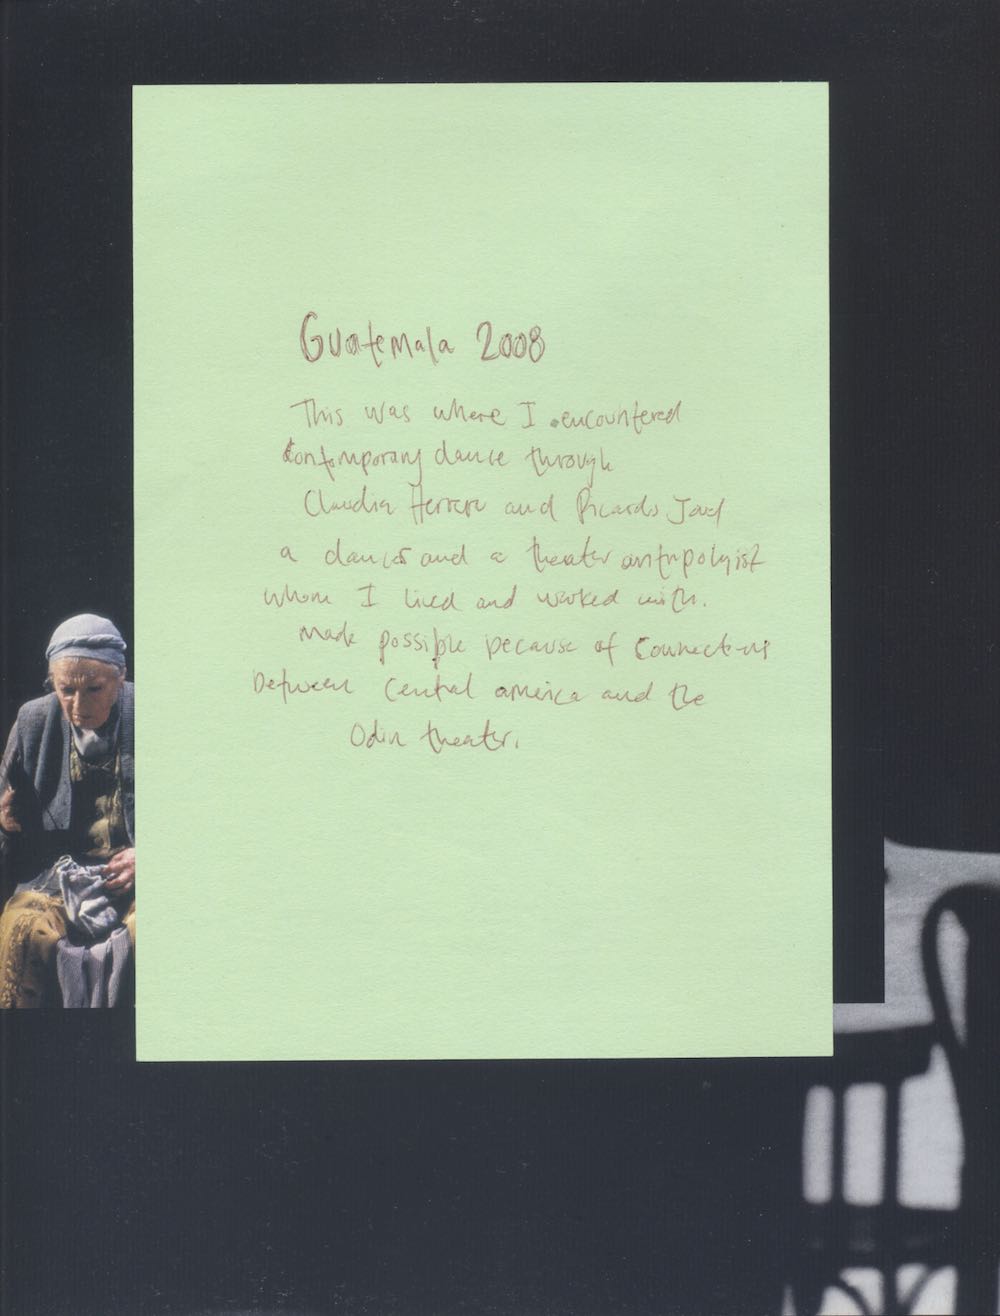 Guatemala 2008
This was where I encountered
contemporary dance through
Claudia Herrera and Ricardo
a dancer and a theater antrpolgist
whom I lived and worked with.
Made possible because of connections
between central america and the
Odin theater.